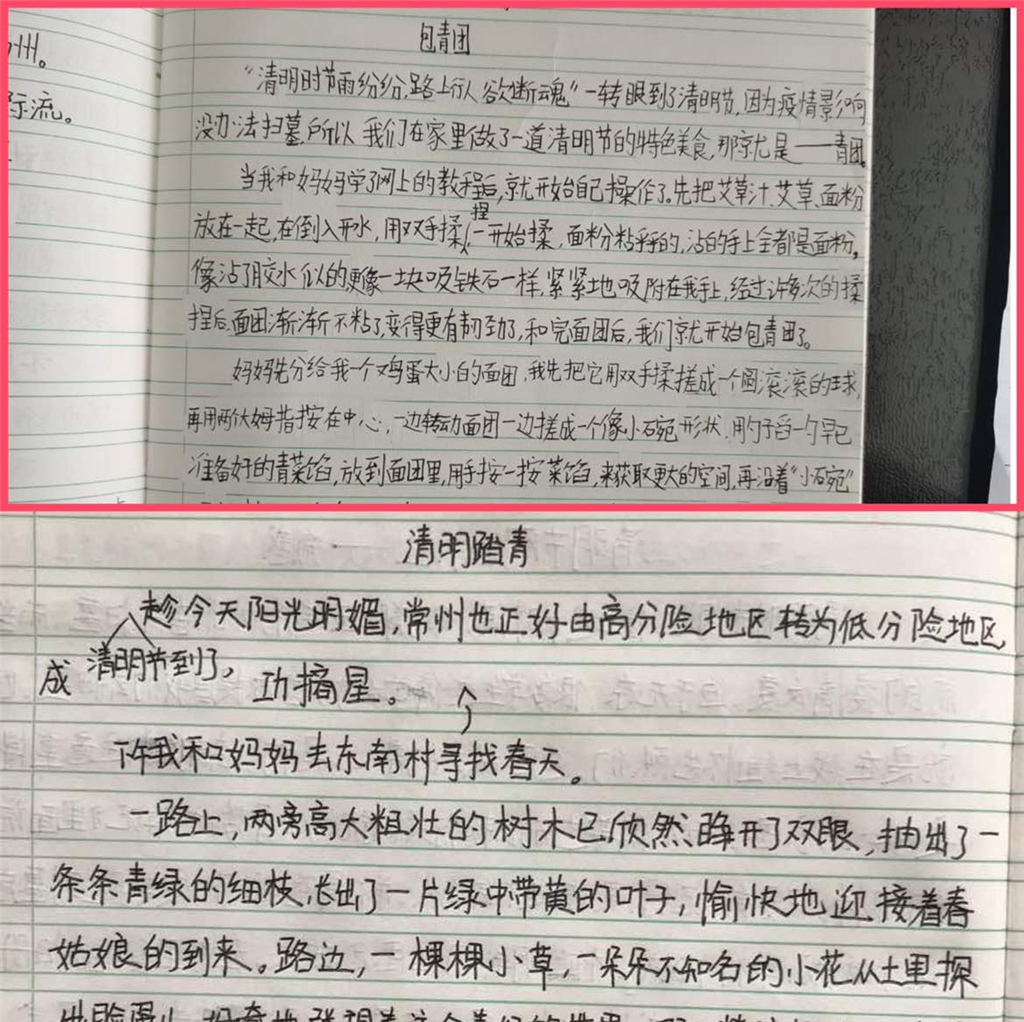 州。
际流。
包青团
“清明时节雨纷纷,路上行人欲断魂”一转眼到了清明节,因为疫情影响
没办法扫墓,所以我们在家里做了一道清明节的特色美食,那就是——青团。
当我和妈妈学了网上的教程后,就开始自己操作了。先把艾草汁、艾草、面粉
放在一起,在倒入开水,用双手揉捏,一开始揉,面粉粘乎乎的,沾的手上全都是面粉,
像沾了胶水似的更像一块吸铁石一样,紧紧地吸附在我手上,经过许多次的揉
捏后,面团渐渐不粘了,变得更有韧劲了,和完面团后,我们就开始包青团了。
妈妈先分给我一个鸡蛋大小的面团,我先把它用双手揉搓成一个圆滚滚的球,
再用两个大姆指按在中心,一边转动面团一边搓成一个像小碗形状,用勺子舀一勺早已
准备好的青菜馅,放到面团里,用手按一按菜馅,来获取更大的空间,再沿着“小碗”
清明踏青
趁今天阳光明媚,常州也正好由高分险地区转为低分险地区,
成清明节到了,功摘星。
下午我和妈妈去东南村寻找春天。
一路上,两旁高大粗壮的树木已欣然睁开了双眼,抽出了一
条条青绿的细枝,长出了一片绿中带黄的叶子,愉快地迎接着春
姑娘的到来。路边,一棵棵小草,一朵朵不知名的小花从土里探